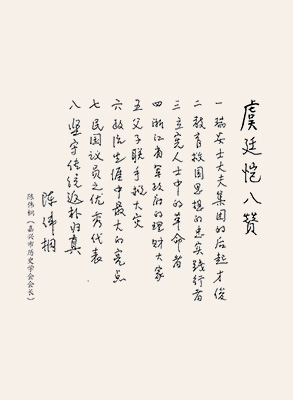 虞廷恺八赞
一 瑞安士大夫集团的后起才俊
二 教育救国思想的忠实践行者
三 立宪人士中的革命者
四 浙江省军政府的理财大家
五 父子联手挑大灾
六 政治生涯中最大的亮点
七 民国议员之优秀代表
八 坚守传统返朴归真
陈伟桐
陈伟桐(嘉兴市历史学会会长)